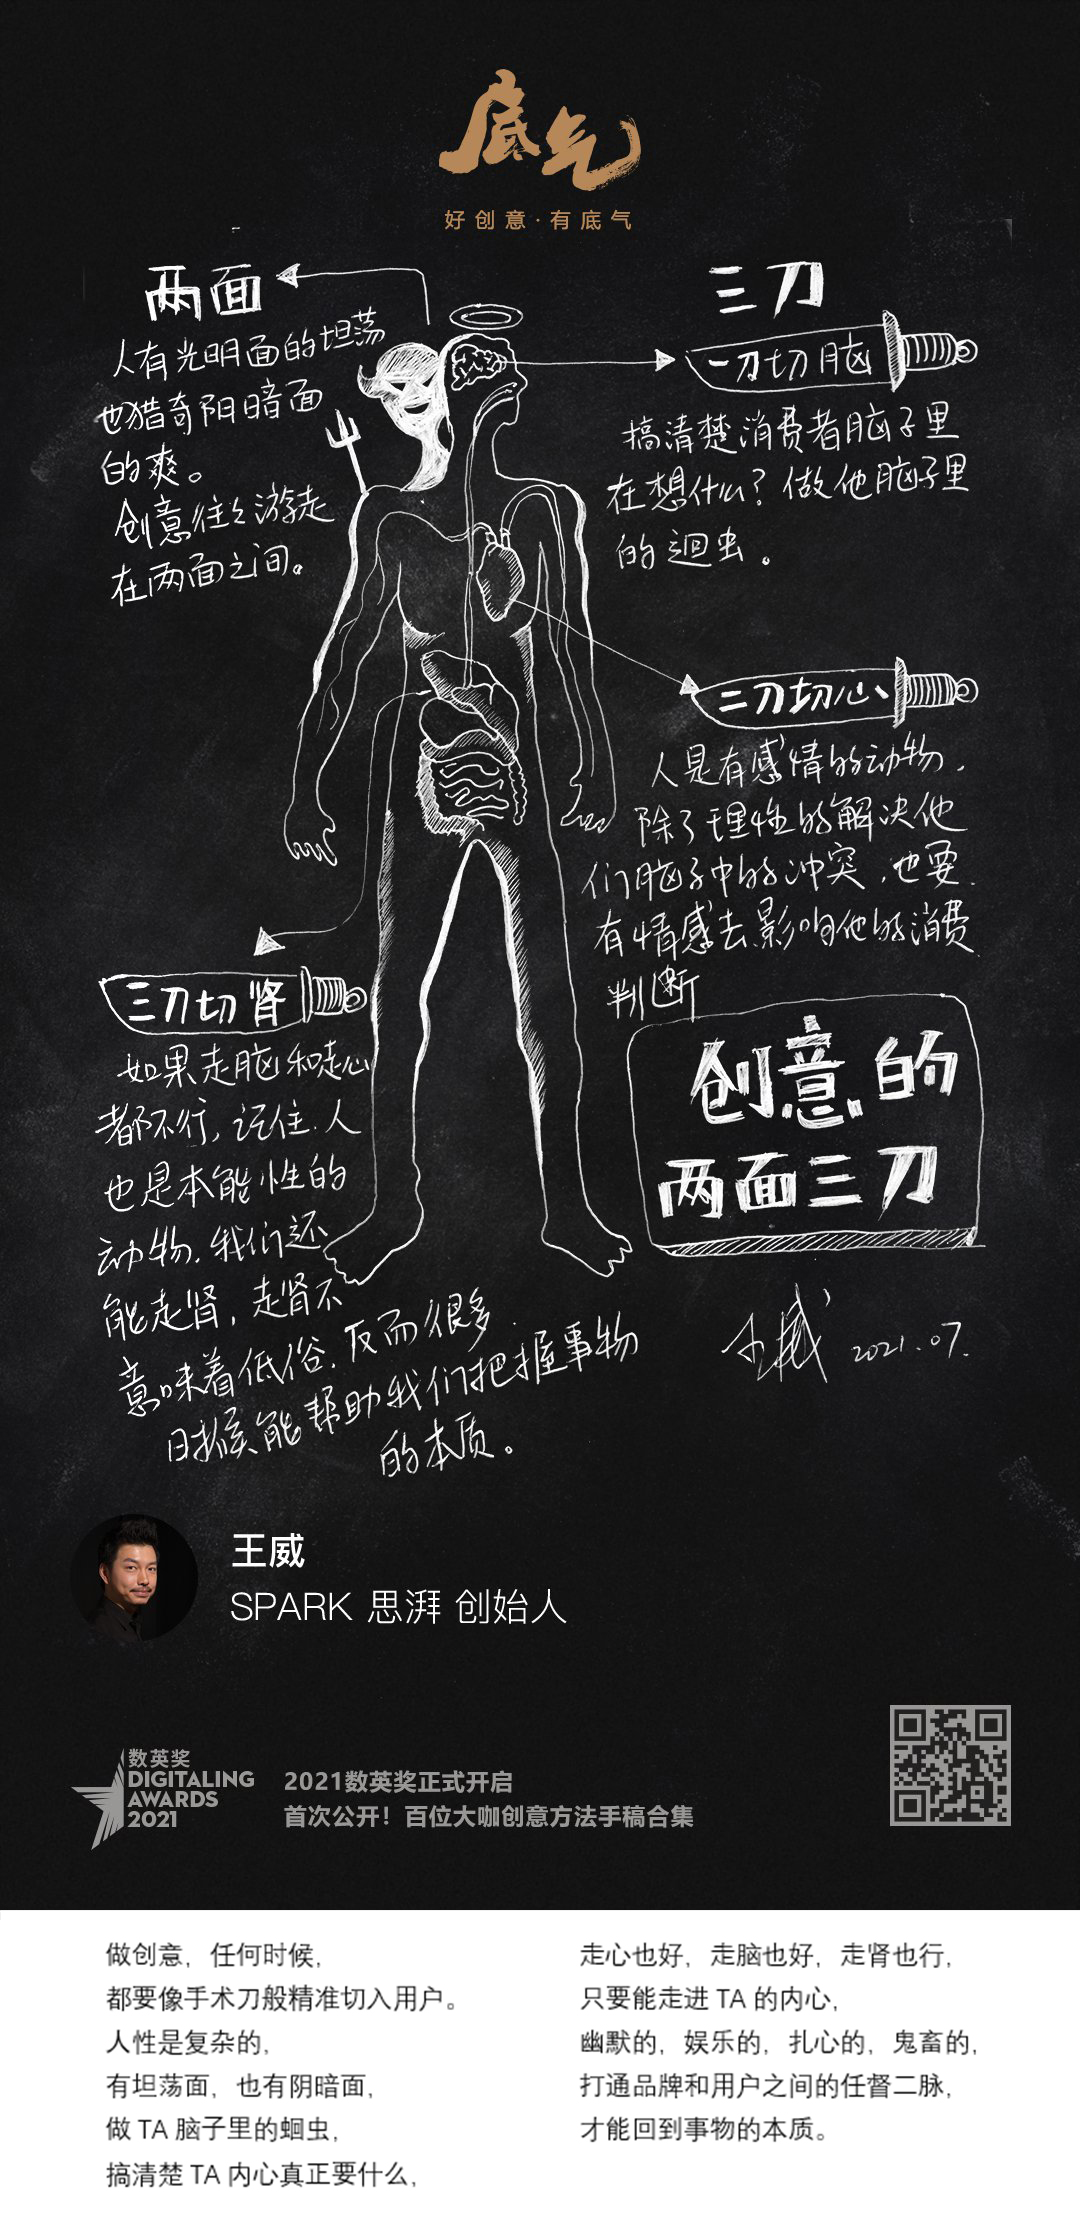 底气
好创意·有底气
两面
人有光明面的坦荡
也猎奇阴暗面
的爽。
创意往之游走
在两面之间。
三刀
一刀切脑
搞清楚消费者脑子里
在想什么？做他脑子里
的迴虫。
二刀切心
人是有感情的动物，
除了理性的解决他
们脑子中的冲突，也要
有情感去影响他的消费
判断
三刀切肾
如果走脑和走心
都不行，记住，人
也是本能性的
动物，我们还
能走肾，走肾不
意味着低俗，反而很多
时候能帮助我们把握事物
的本质。
创意的
两面三刀
王威 2021.07.
王威
SPARK 思湃 创始人
数英奖
DIGITALING
AWARDS
2021
2021数英奖正式开启
首次公开！百位大咖创意方法手稿合集
做创意，任何时候，
都要像手术刀般精准切入用户。
人性是复杂的，
有坦荡面，也有阴暗面，
做 TA 脑子里的蛔虫，
搞清楚 TA 内心真正要什么，
走心也好，走脑也好，走肾也行，
只要能走进 TA 的内心，
幽默的，娱乐的，扎心的，鬼畜的，
打通品牌和用户之间的任督二脉，
才能回到事物的本质。